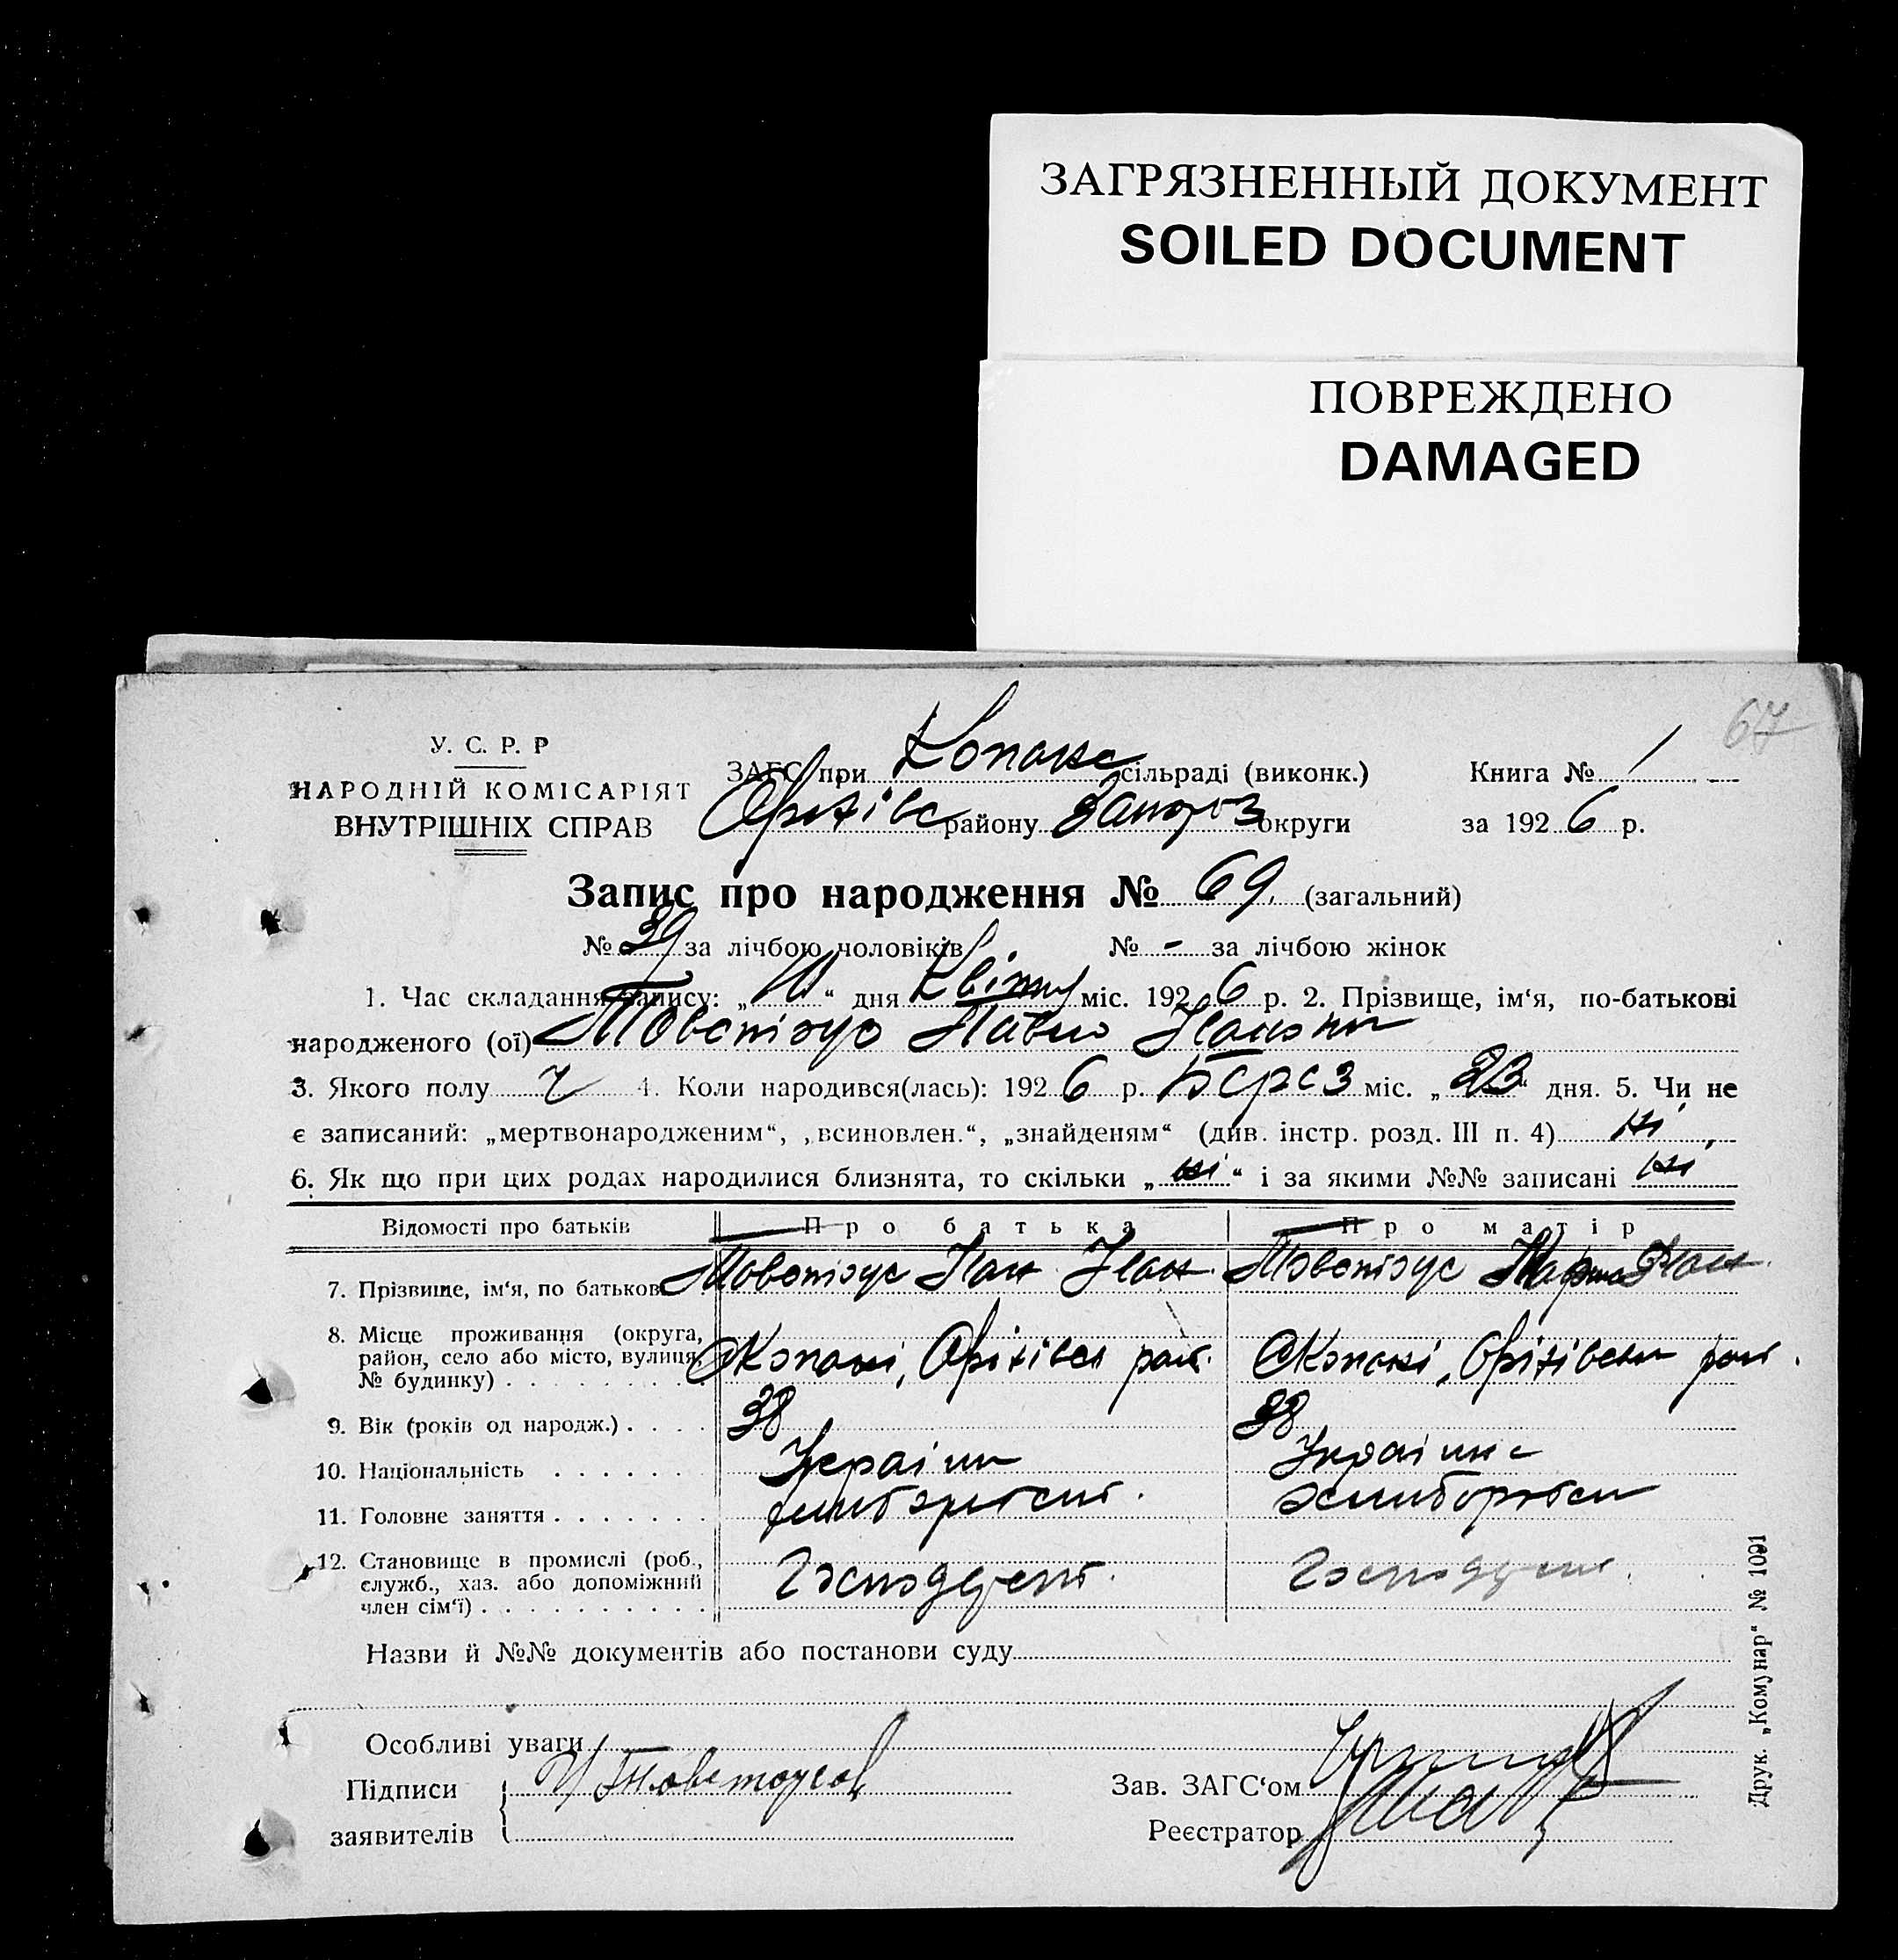 ЗАГРЯЗНЕННЫЙ ДОКУМЕНТ
SOILED DOCUMENT
ПОВРЕЖДЕНО
DAMAGED
67
У. С. Р. Р
НАРОДНІЙ КОМІСАРІЯТ
ВНУТРІШНІХ СПРАВ
ЗАГС при Копанс сільраді (виконк.) Книга № 1
Оріхівс району Запоріз округи за 1926 р.
Запис про народження № 69 (загальний)
№ 39 за лічбою чоловіків № - за лічбою жінок
1. Час складання запису: „10“ дня Квітня міс. 1926 р. 2. Прізвище, ім‘я, по-батькові
народженого (ої) Товстоус Павло Іванови
3. Якого полу ч 4. Коли народився(лась): 1926 р. Берез міс. „23“ дня. 5. Чи не
є записаний: „мертвонародженим“, „всиновлен.“, „знайденям“ (див. інстр. розд. III п. 4) ні
6. Як що при цих родах народилися близнята, то скільки „ні“ і за якими №№ записані ні
Відомості про батьків Про батька Про матір
7. Прізвище, ім‘я, по батьков. Товстоус Іван Іван. Товстоус Марфа Іван.
8. Місце проживання (округа,
район, село або місто, вулиця, с Копані, Оріхівсь рай. с Копані, Оріхівськ рай.
№ будинку)
9. Вік (років од народж.) 38 38
10. Національність Україн Україн
11. Головне заняття хліборобст. хлібороб
12. Становище в промислі (роб.,
служб., хаз. або допоміжний Господ Господ
член сім‘ї)
Назви й №№ документів або постанови суду
Особливі уваги
Підписи Товстоусов
заявителів
Зав. ЗАГС‘ом
Реєстратор
Друк. „Комунар“ № 1091